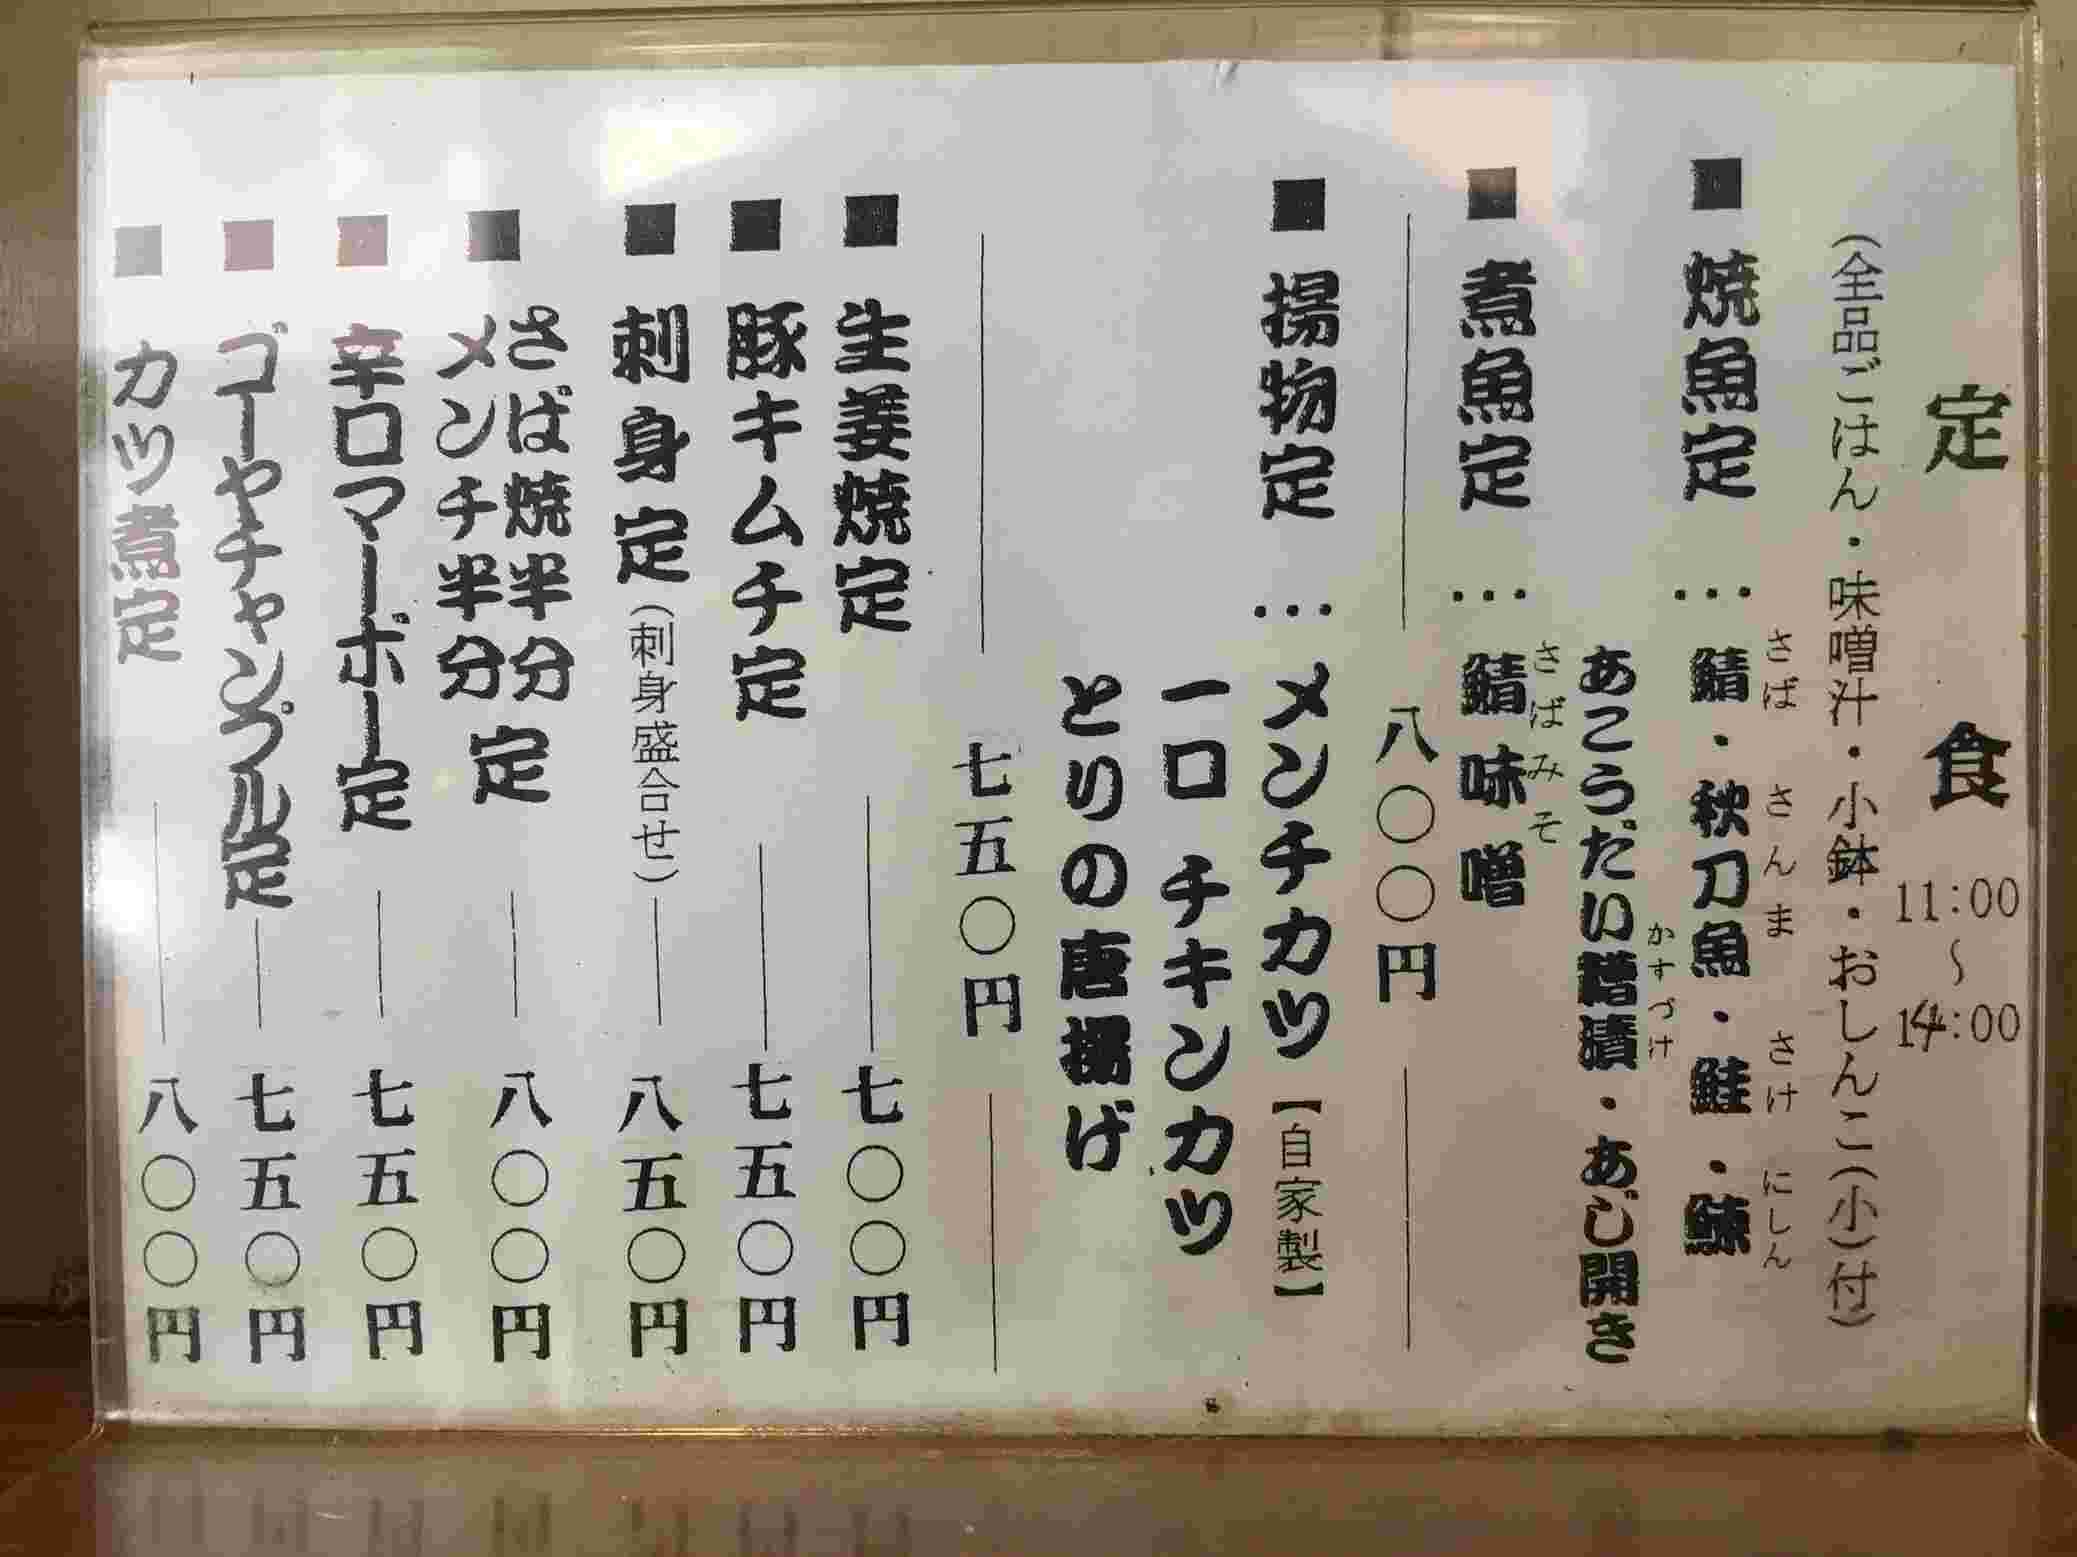 定食 11:00～14:00
(全品ごはん・味噌汁・小鉢・おしんこ(小)付)
■焼魚定…鯖・秋刀魚・鮭・鰊
さば さんま さけ にしん
あこうだい糟漬・あじ開き
かすづけ
■煮魚定…鯖味噌
さばみそ
八〇〇円
■揚物定…メンチカツ【自家製】
一口チキンカツ
とりの唐揚げ
七五〇円
■生姜焼定 七〇〇円
■豚キムチ定 七五〇円
■刺身定(刺身盛合せ) 八五〇円
■さば焼半分
メンチ半分 定 八〇〇円
■辛口マーボー定 七五〇円
■ゴーヤチャンプル定 七五〇円
■カツ煮定 八〇〇円